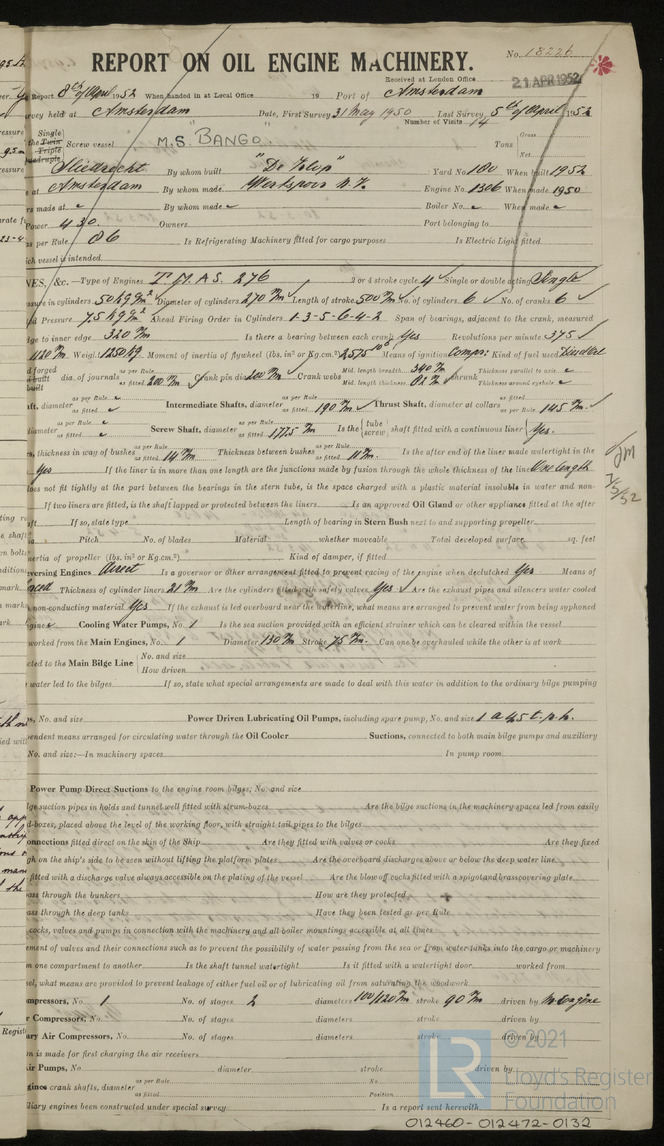 REPORT ON OIL ENGINE MACHINERY.
No. 18226
Received at London Office
21 APR 1952
Report 8th of April 1952 When handed in at Local Office 19 Port of Amsterdam
survey held at Amsterdam Date, First Survey 31 May 1950 Last Survey 5th of April 1952
Number of Visits 14
Single
the Twin
Triple
Quadruple
Screw vessel M.S. "BANGO" Tons Gross
Net
Sliedrecht By whom built Yard No 180 When built 1952
at Amsterdam By whom made Werkspoor N.V. Engine No. 1306 When made 1950
rs made at By whom made Boiler No. When made
Power 430 Owners Port belonging to
as per Rule 86 Is Refrigerating Machinery fitted for cargo purposes Is Electric Light fitted
ich vessel is intended
NES, &c.—Type of Engines T.M.A.S. 276 2 or 4 stroke cycle 4 Single or double acting Single
ssure in cylinders 50 kg Diameter of cylinders 270 Length of stroke 500 No. of cylinders 6 No. of cranks 6
d Pressure 7.5 kg Ahead Firing Order in Cylinders 1-3-5-6-4-2 Span of bearings, adjacent to the crank, measured
dge to inner edge 320 Is there a bearing between each crank Yes Revolutions per minute 375
1120 Weight 1250 kg Moment of inertia of flywheel (lbs. in² or Kg.cm.²) Means of ignition Compr: Kind of fuel used
dia. of journals as per Rule as fitted 200 Crank pin dia Crank webs Mid. length breadth 340 Mid. length thickness shrunk Thickness parallel to axis Thickness around eyehole
aft, diameter as per Rule as fitted Intermediate Shafts, diameter as per Rule as fitted 190 Thrust Shaft, diameter at collars as per Rule as fitted 145
diameter as per Rule as fitted Screw Shaft, diameter as per Rule as fitted 177.5 Is the tube screw shaft fitted with a continuous liner Yes.
s, thickness in way of bushes as per Rule as fitted 14 Thickness between bushes as per Rule as fitted 11 Is the after end of the liner made watertight in the
Yes If the liner is in more than one length are the junctions made by fusion through the whole thickness of the liner One length
does not fit tightly at the part between the bearings in the stern tube, is the space charged with a plastic material insoluble in water and non-
If two liners are fitted, is the shaft lapped or protected between the liners Is an approved Oil Gland or other appliance fitted at the after
aft If so, state type Length of bearing in Stern Bush next to and supporting propeller
Pitch No. of blades Material whether moveable Total developed surface sq. feet
inertia of propeller (lbs. in² or Kg.cm.²) Kind of damper, if fitted
eversing Engines direct Is a governor or other arrangement fitted to prevent racing of the engine when declutched Yes Means of
Thickness of cylinder liners 21 Are the cylinders fitted with safety valves Yes Are the exhaust pipes and silencers water cooled
non-conducting material Yes If the exhaust is led overboard near the waterline, what means are arranged to prevent water from being syphoned
Cooling Water Pumps, No. 1 Is the sea suction provided with an efficient strainer which can be cleared within the vessel
worked from the Main Engines, No. 1 Diameter 130 Stroke 75 Can one be overhauled while the other is at work
cted to the Main Bilge Line No. and size
How driven
water led to the bilges If so, state what special arrangements are made to deal with this water in addition to the ordinary bilge pumping
s, No. and size Power Driven Lubricating Oil Pumps, including spare pump, No. and size 1 a 4,5 t.p.h.
pendent means arranged for circulating water through the Oil Cooler Suctions, connected to both main bilge pumps and auxiliary
No. and size:—In machinery spaces In pump room
Power Pump Direct Suctions to the engine room bilges, No. and size
lge suction pipes in holds and tunnel well fitted with strum-boxes Are the bilge suctions in the machinery spaces led from easily
d-boxes, placed above the level of the working floor, with straight tail pipes to the bilges
onnections fitted direct on the skin of the Ship Are they fitted with valves or cocks Are they fixed
gh on the ship's side to be seen without lifting the platform plates Are the overboard discharges above or below the deep water line
fitted with a discharge valve always accessible on the plating of the vessel Are the blow off cocks fitted with a spigot and brass covering plate
ass through the bunkers How are they protected
ass through the deep tanks Have they been tested as per Rule
cocks, valves and pumps in connection with the machinery and all boiler mountings accessible at all times
ement of valves and their connections such as to prevent the possibility of water passing from the sea or from water tanks into the cargo or machinery
m one compartment to another Is the shaft tunnel watertight Is it fitted with a watertight door worked from
sel, what means are provided to prevent leakage of either fuel oil or of lubricating oil from saturating the woodwork
mpressors, No. 1 No. of stages 2 diameters 100/120 stroke 90 driven by M. engine
r Compressors, No. No. of stages diameters stroke driven by
ary Air Compressors, No. No. of stages diameters stroke driven by
n is made for first charging the air receivers
ir Pumps, No. diameter stroke driven by
gines crank shafts, diameter as per Rule as fitted No. Position
iliary engines been constructed under special survey Is a report sent herewith
LR
© 2021
Lloyd's Register
Foundation
012460-012472-0132